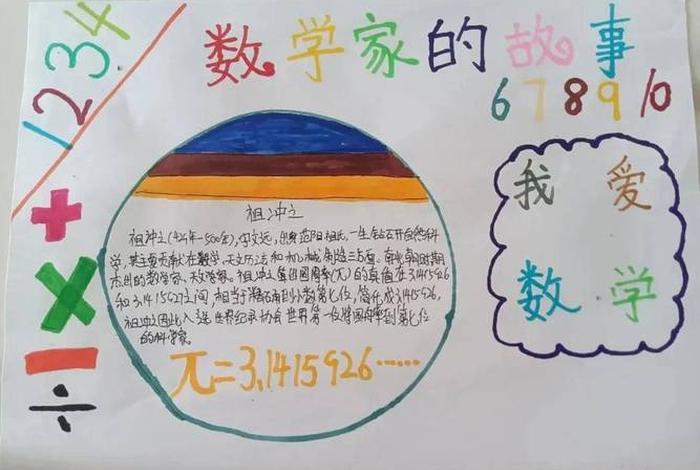 1234
数学家的故事
678910
+
×
−
÷
祖冲之
祖冲之(429年-500年),字文远,出身范阳祖氏,一生钻石开自然科
学,其主要贡献在数学、天文历法和机械制造三方面。南北朝时期
杰出的数学家、天文学家。祖冲之算出圆周率(π)的真值在3.1415926
和3.1415927之间,相当于精确到小数第七位,简化成3.1415926,
祖冲之因此入选世界纪录协会世界第一位将圆周率到第七位
的科学家。
π=3.1415926……
我 爱
数 学